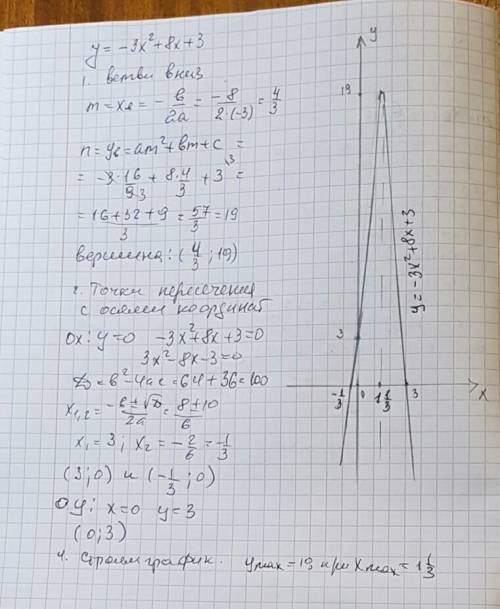 y = -3x²+8x+3
1. ветви вниз
m = xв = - в/2a = -8/2·(-3) = 4/3
n = yв = am²+bm+c =
= -3·16/9 3 + 8·4/3 + 3 \3 =
= 16+32+9/3 = 57/3 = 19
вершина: (4/3 ; 19)
2. Точки пересечения
с осями координат
ox: y=0 -3x²+8x+3=0
3x²-8x-3=0
D = b²-4ac = 64+36=100
x1,2 = -b±√D/2a = 8±10/6
x1 = 3; x2 = -2/6 = -1/3
(3;0) и (-1/3 ;0)
oy: x=0 y=3
(0;3)
4. Строим график. ymax = 19 при xmax = 1 1/3
y
19
3
y = -3x²+8x+3
-1/3 0 1 1/3 3 x